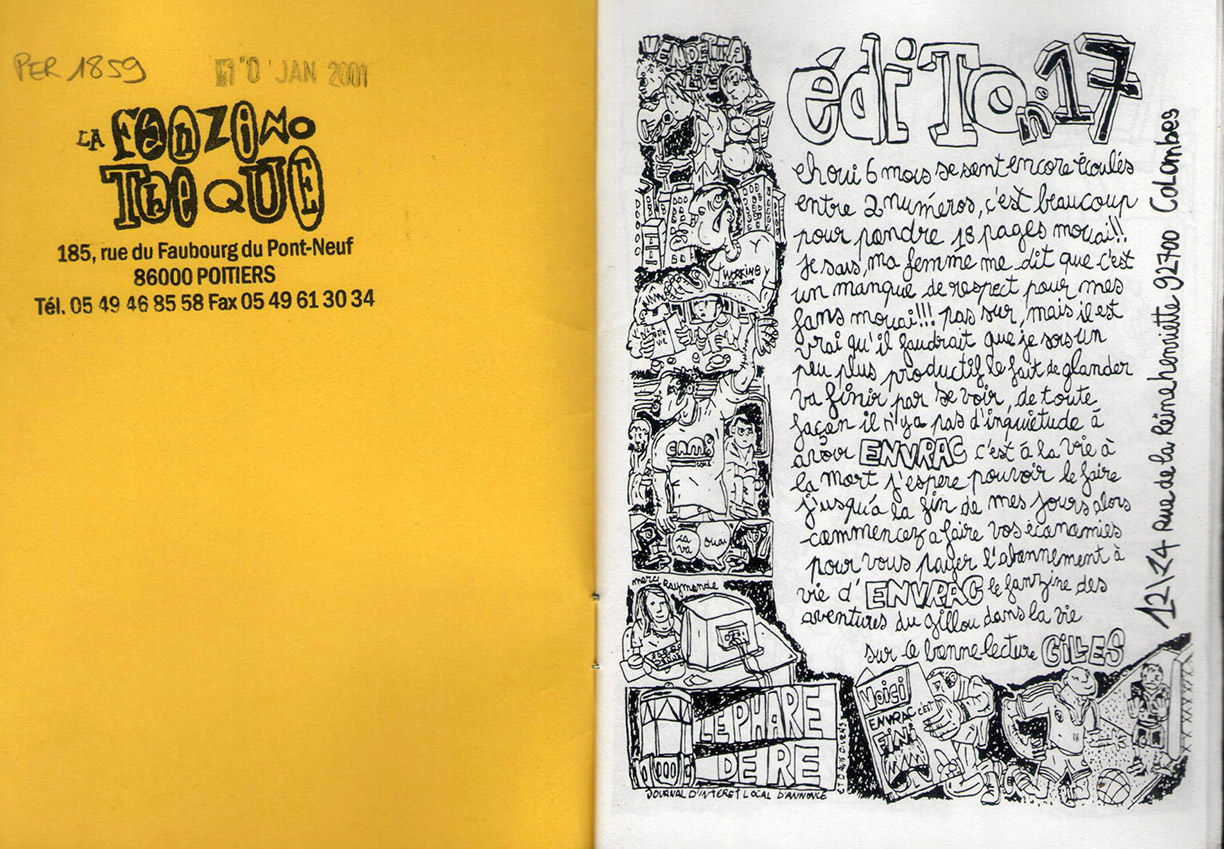 PER 1859
10 JAN 2001
LA FANZINO
THEQUE
185, rue du Faubourg du Pont-Neuf
86000 POITIERS
Tél. 05 49 46 85 58 Fax 05 49 61 30 34
VENDETTA
édiTO n°17
eh oui 6 mois se sont encore écoulés
entre 2 numéros, c'est beaucoup
pour pondre 18 pages mouai!!
je sais, ma femme me dit que c'est
un manque de respect pour mes
fans mouai!!! pas sur, mais il est
vrai qu'il faudrait que je sois un
peu plus productif le fait de glander
va finir par se voir, de toute
façon il n'y a pas d'inquiètude à
avoir ENVRAC c'est à la vie à
la mort j'espere pouvoir le faire
j'usqu'a la fin de mes jours alors
commencez a faire vos écanamies
pour vous payer l'abannement à
vie d'ENVRAC le fanzine des
aventures du gillou dans la vie
sur ce bonne lecture GILLES
12\14 Rue de la Reine henriette 92700 Colombes
WORKING
ça va
ouai
merci Raymonde
LE PHARE
DE RE
JOURNAL D'INTERET LOCAL D'ANNONCE
Voici
ENVRAC c'est
FINI